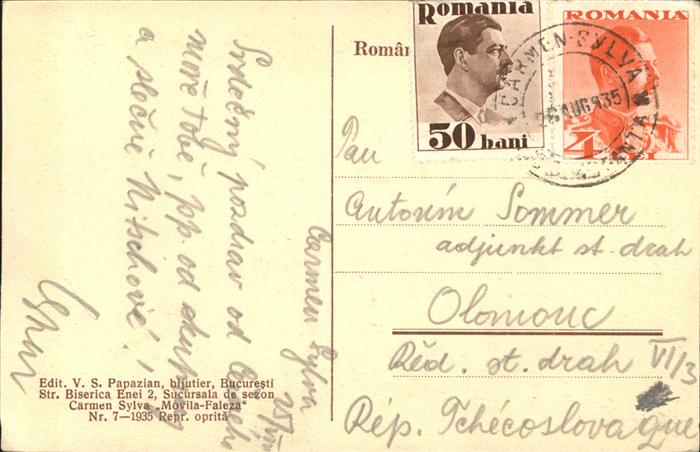 Srdečný pozdrav od Černého
moře Tobě, pp. od skupiny
a slečně Nitschové!
Carmen Sylva
Edit. V. S. Papazian, bijutier, Bucureşti
Str. Biserica Enei 2, Sucursala de sezon
Carmen Sylva „Movila-Faleza"
Nr. 7—1935 Repr. oprită
Român
Romania
50 bani
ROMANIA
4
CARMEN-SYLVA
AUG 935
CONSTANTA
Pan
Antonín Sommer
adjunkt st. drah
Olomouc
Řed. st. drah VI/3
Rép. Tchécoslovaque